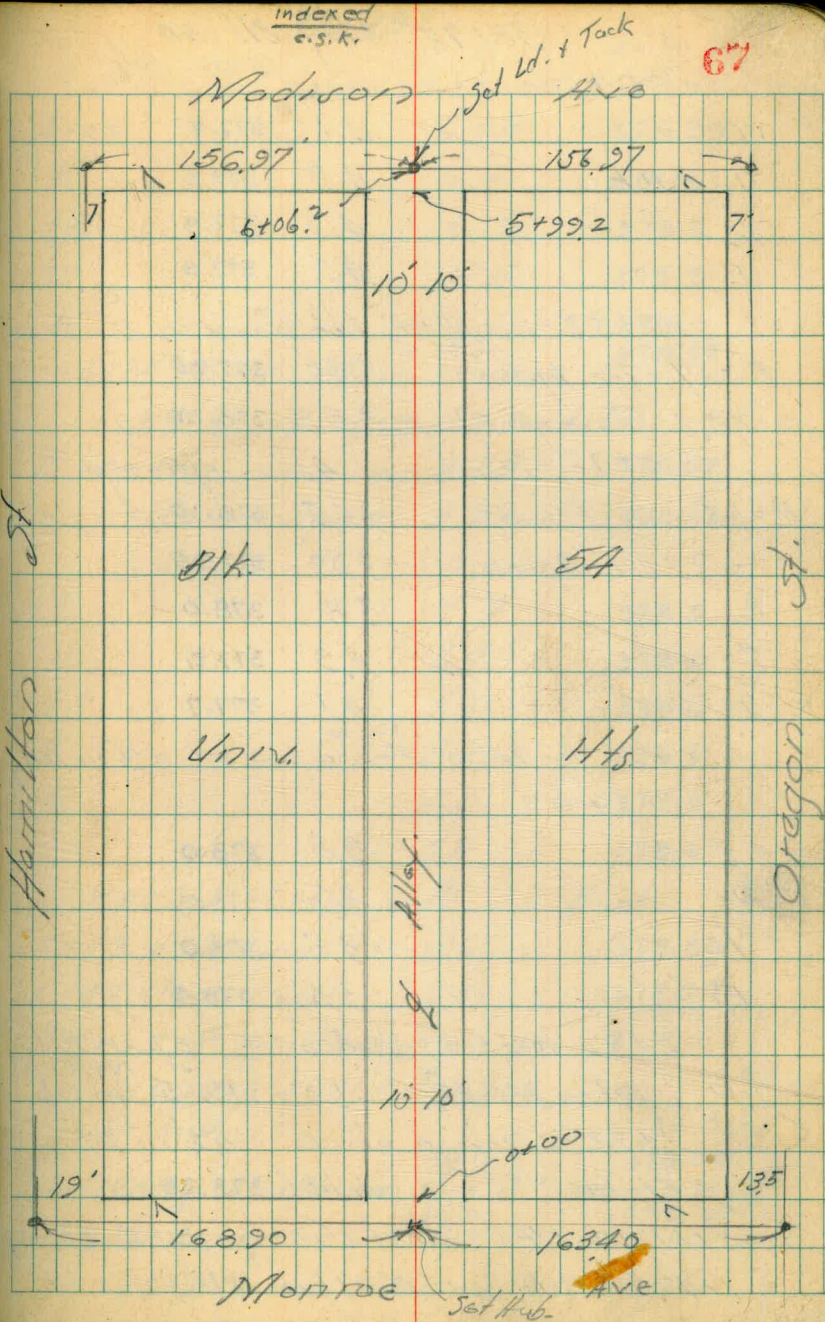 indexed
c.s.k.
67
Set Ld. & Tack
Madison Ave
156.97' 156.97
7 7
7' 7'
6+06.2 5+99.2
10' 10'
Hamilton St
Blk. 54
Univ. Hts.
Oregon St.
℄ Alley.
10' 10'
0+00
19' 13.5
7 7
168.90 163.40
Monroe Ave
Set Hub.